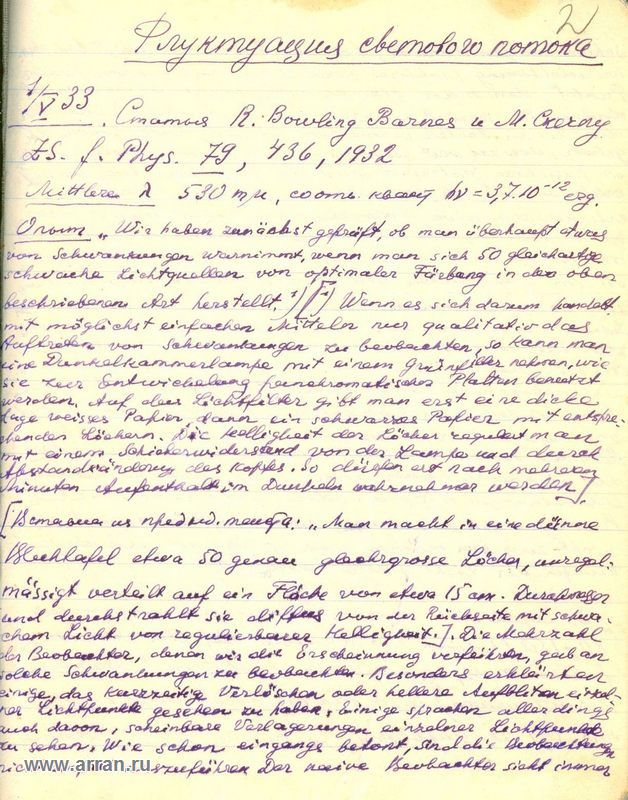 2
Флуктуация светового потока
1/V 33. Статья R. Bowling Barnes и M. Czerny
ZS. f. Phys. 79, 436, 1932
Mittlere λ 530 mμ, соотв. квант hν = 3,7.10⁻¹² erg.
Опыт „Wir haben zunächst geprüft, ob man überhaupt etwas
von Schwankungen warnimmt, wenn man sich 50 gleichartige
schwache Lichtquellen von optimaler Färbung in der oben
beschriebenen Art herstellt. Wenn es sich darum handelt
mit möglichst einfachen Mitteln nur qualitativ das
Auftreten von Schwankungen zu beobachten, so kann man
eine Dunkelkammerlampe mit einem grünfilter nehmen, wie
sie zur Entwickelung panchromatischer Platten benutzt
werden. Auf das Lichtfilter gibt man erst eine dicke
Lage weisses Papier, dann ein schwarzes Papier mit entspre-
chenden Löchern. Die Helligkeit der Löcher reguliert man
mit einem Schieberwiderstand von der Lampe und durch
Abstandsänderung des Kopfes. so dürfen erst nach mehreren
Minuten Aufenthalt im Dunkeln wahrnehmbar werden]
[Вставка из предыд. текста: „Man macht in eine dünne
Blechtafel etwa 50 genau gleichgrosse Löcher, unregel-
mässigt verteilt auf ein Fläche von etwa 15 cm. Durchmesser
und durchstrahlt sie diffus von der Rückseite mit schwa-
chem Licht von regulierbarer Helligkeit.]. Die Mehrzahl
der Beobachter, denen wir die Erscheinung vorführten, gab an
solche Schwankungen zu beobachten. Besonders erklärten
einige, das kurzzeitig Verlöschen oder hellere Aufblitzen einzel-
ner Lichtpunkte gesehen zu haben, Einige sprachen allerdings
auch davon, scheinbare Verlagerungen einzelner Lichtpunkte
zu sehen. Wie schon eingangs betont, sind die Beobachtungen
auszuführen Der naive Beobachter sieht immer
www.arran.ru